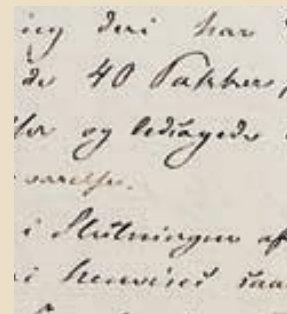 ieg deri har
de 40 Pakker,
for og ledsagede
varelse.
i Slutningen af
i henviset saa